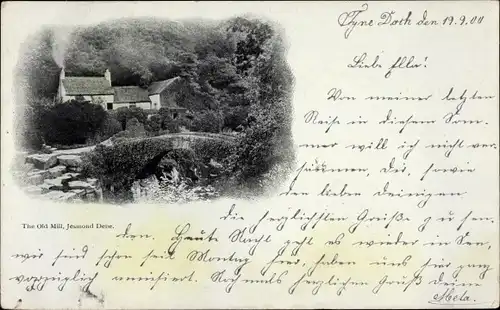 Tyne Dock den 19.9.00
Liebe Ella!
Von meiner letzten
Reise in diesem Som-
mer will ich nicht ver-
säumen, dir, sowie
den lieben deinigen
die herzlichsten Grüße zu sen-
den. Heute Nacht geht es wieder in See,
wir sind schon seit Montag hier, haben uns hier ganz
vorzüglich amüsiert. Nochmals herzlichen Gruß deine
Meta.
The Old Mill, Jesmond Dene.